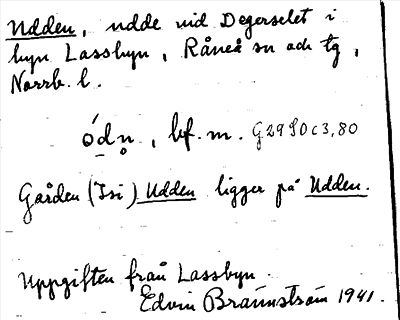 Udden, udde vid Degerselet i
byn Lassbyn, Råneå sn och tg,
Norrb. l.
ódn, bf. m. G29S0c3,80
Gården (Isi) Udden ligger på Udden.
Uppgiften från Lassbyn.
Edvin Brännström 1941.